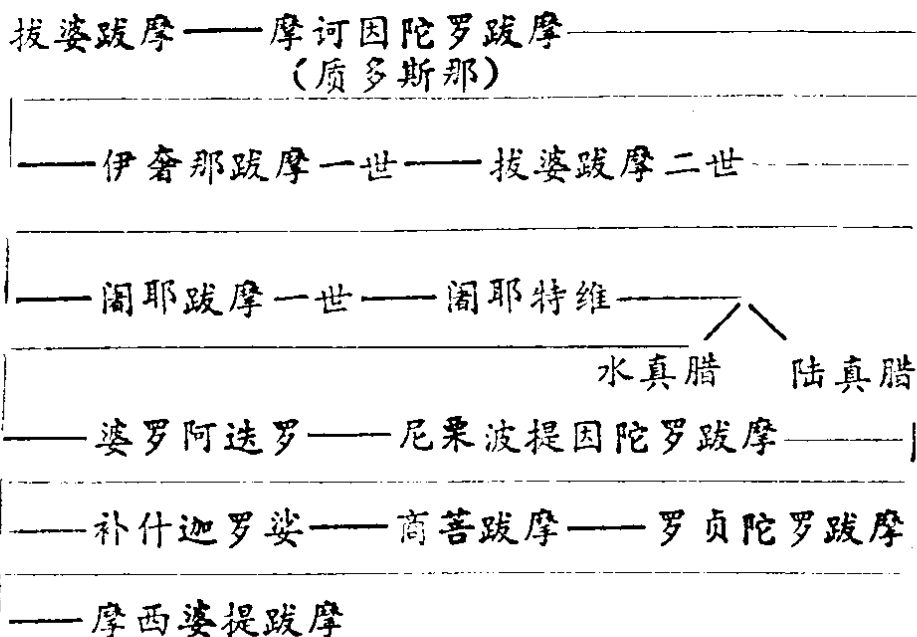 拔婆跋摩——摩诃因陀罗跋摩
(质多斯那)
——伊奢那跋摩一世——拔婆跋摩二世
——阇耶跋摩一世——阇耶特维
水真腊 陆真腊
——婆罗阿迭罗——尼栗波提因陀罗跋摩
——补什迦罗娑——商菩跋摩——罗贞陀罗跋摩
——摩西婆提跋摩